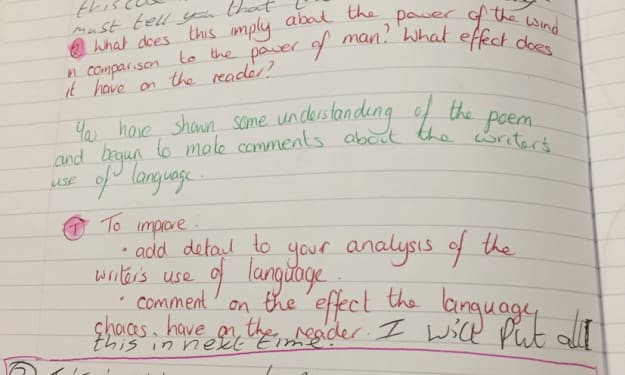 must tell you that
② What does this imply about the power of the wind
in comparison to the power of man? What effect does
it have on the reader?
You have shown some understanding of the poem
and begun to make comments about the writer's
use of language.
Ⓣ To improve.
• add detail to your analysis of the
writer's use of language.
• comment on the effect the language
choices have on the reader. I will put all
this in next time.